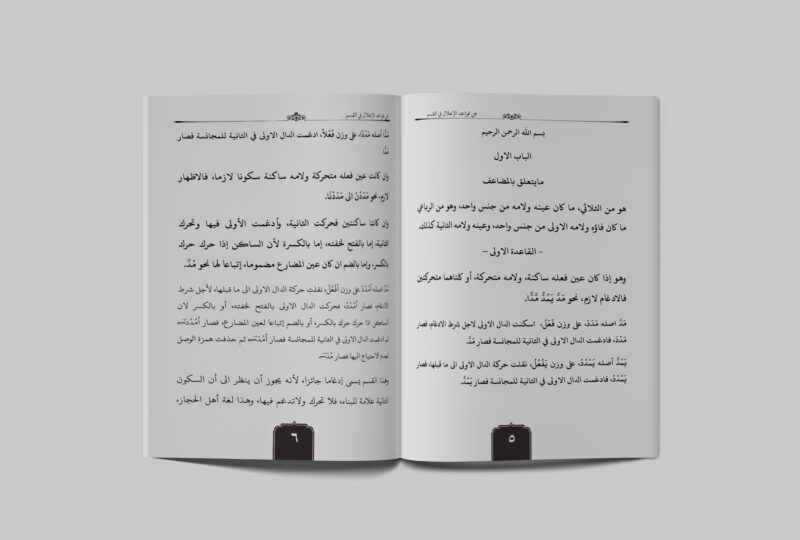 فن قواعد الإعلال في القسم
بسم الله الرحمن الرحيم
الباب الاول
مايتعلق بالمضاعف
هو من الثلاثي، ما كان عينه ولامه من جنس واحد، وهو من الرباعي
ما كان فاؤه ولامه الاولى من جنس واحد، وعينه ولامه الثانية كذلك.
– القاعدة الاولى –
وهو إذا كان عين فعله ساكنة، ولامه متحركة، أو كلتاهما متحركتين
فالادغام لازم، نحو مَدَّ يَمُدُّ مَدًّا.
مَدَّ اصله مَدَدَ، على وزن فَعَلَ، اسكنت الدال الاولى لاجل شرط الادغام، فصار
مَدْدَ، فادغمت الدال الاولى في الثانية للمجانسة فصار مَدَّ.
يَمُدُّ أصله يَمْدُدُ، على وزن يَفْعُلُ، نقلت حركة الدال الاولى الى ما قبلها، فصار
يَمُدْدُ، فادغمت الدال الاولى في الثانية للمجانسة فصار يَمُدُّ.
٥
فن قواعد الإعلال في القسم
مَدًّا أصله مَدْدًا، على وزن فَعْلاً، ادغمت الدال الاولى في الثانية للمجانسة فصار
مَدًّا.
وإن كانت عين فعله متحركة ولامه ساكنة سكونا لازما، فالاظهار
لازم، نحو مَدَدْنَ الى مَدَدْنَا.
وإن كانتا ساكنتين فحركت الثانية، وأدغمت الأولى فيها وتحرك
الثانية، إما بالفتح لخفته، إما بالكسرة لأن الساكن إذا حرك حرك
بالكسر، وإما بالضم ان كان عين المضارع مضموما، إتباعا لها نحو مُدَّ.
مُدَّ اصله أُمْدُدْ على وزن أُفْعُلْ، نقلت حركة الدال الاولى الى ما قبلها، لأجل شرط
الادغام، فصار أُمُدْدْ، فحركت الدال الاولى بالفتح لخفته، أو بالكسر لان
الساكن اذا حرك حرك بالكسر، أو بالضم إتباعا لعين المضارع، فصار أُمُدْدَ
ثم ادغمت الدال الاولى في الثانية للمجانسة فصار أُمُدَّ ثم حذفت همزة الوصل
لعدم الاحتياج اليها فصار مُدَّ.
وهذا القسم يسمى إدغاما جائزا، لأنه يجوز أن ينظر الى أن السكون
الثانية علامة للبناء، فلا تحرك ولاتدغم فيها، وهذا لغة أهل الحجاز،
٦